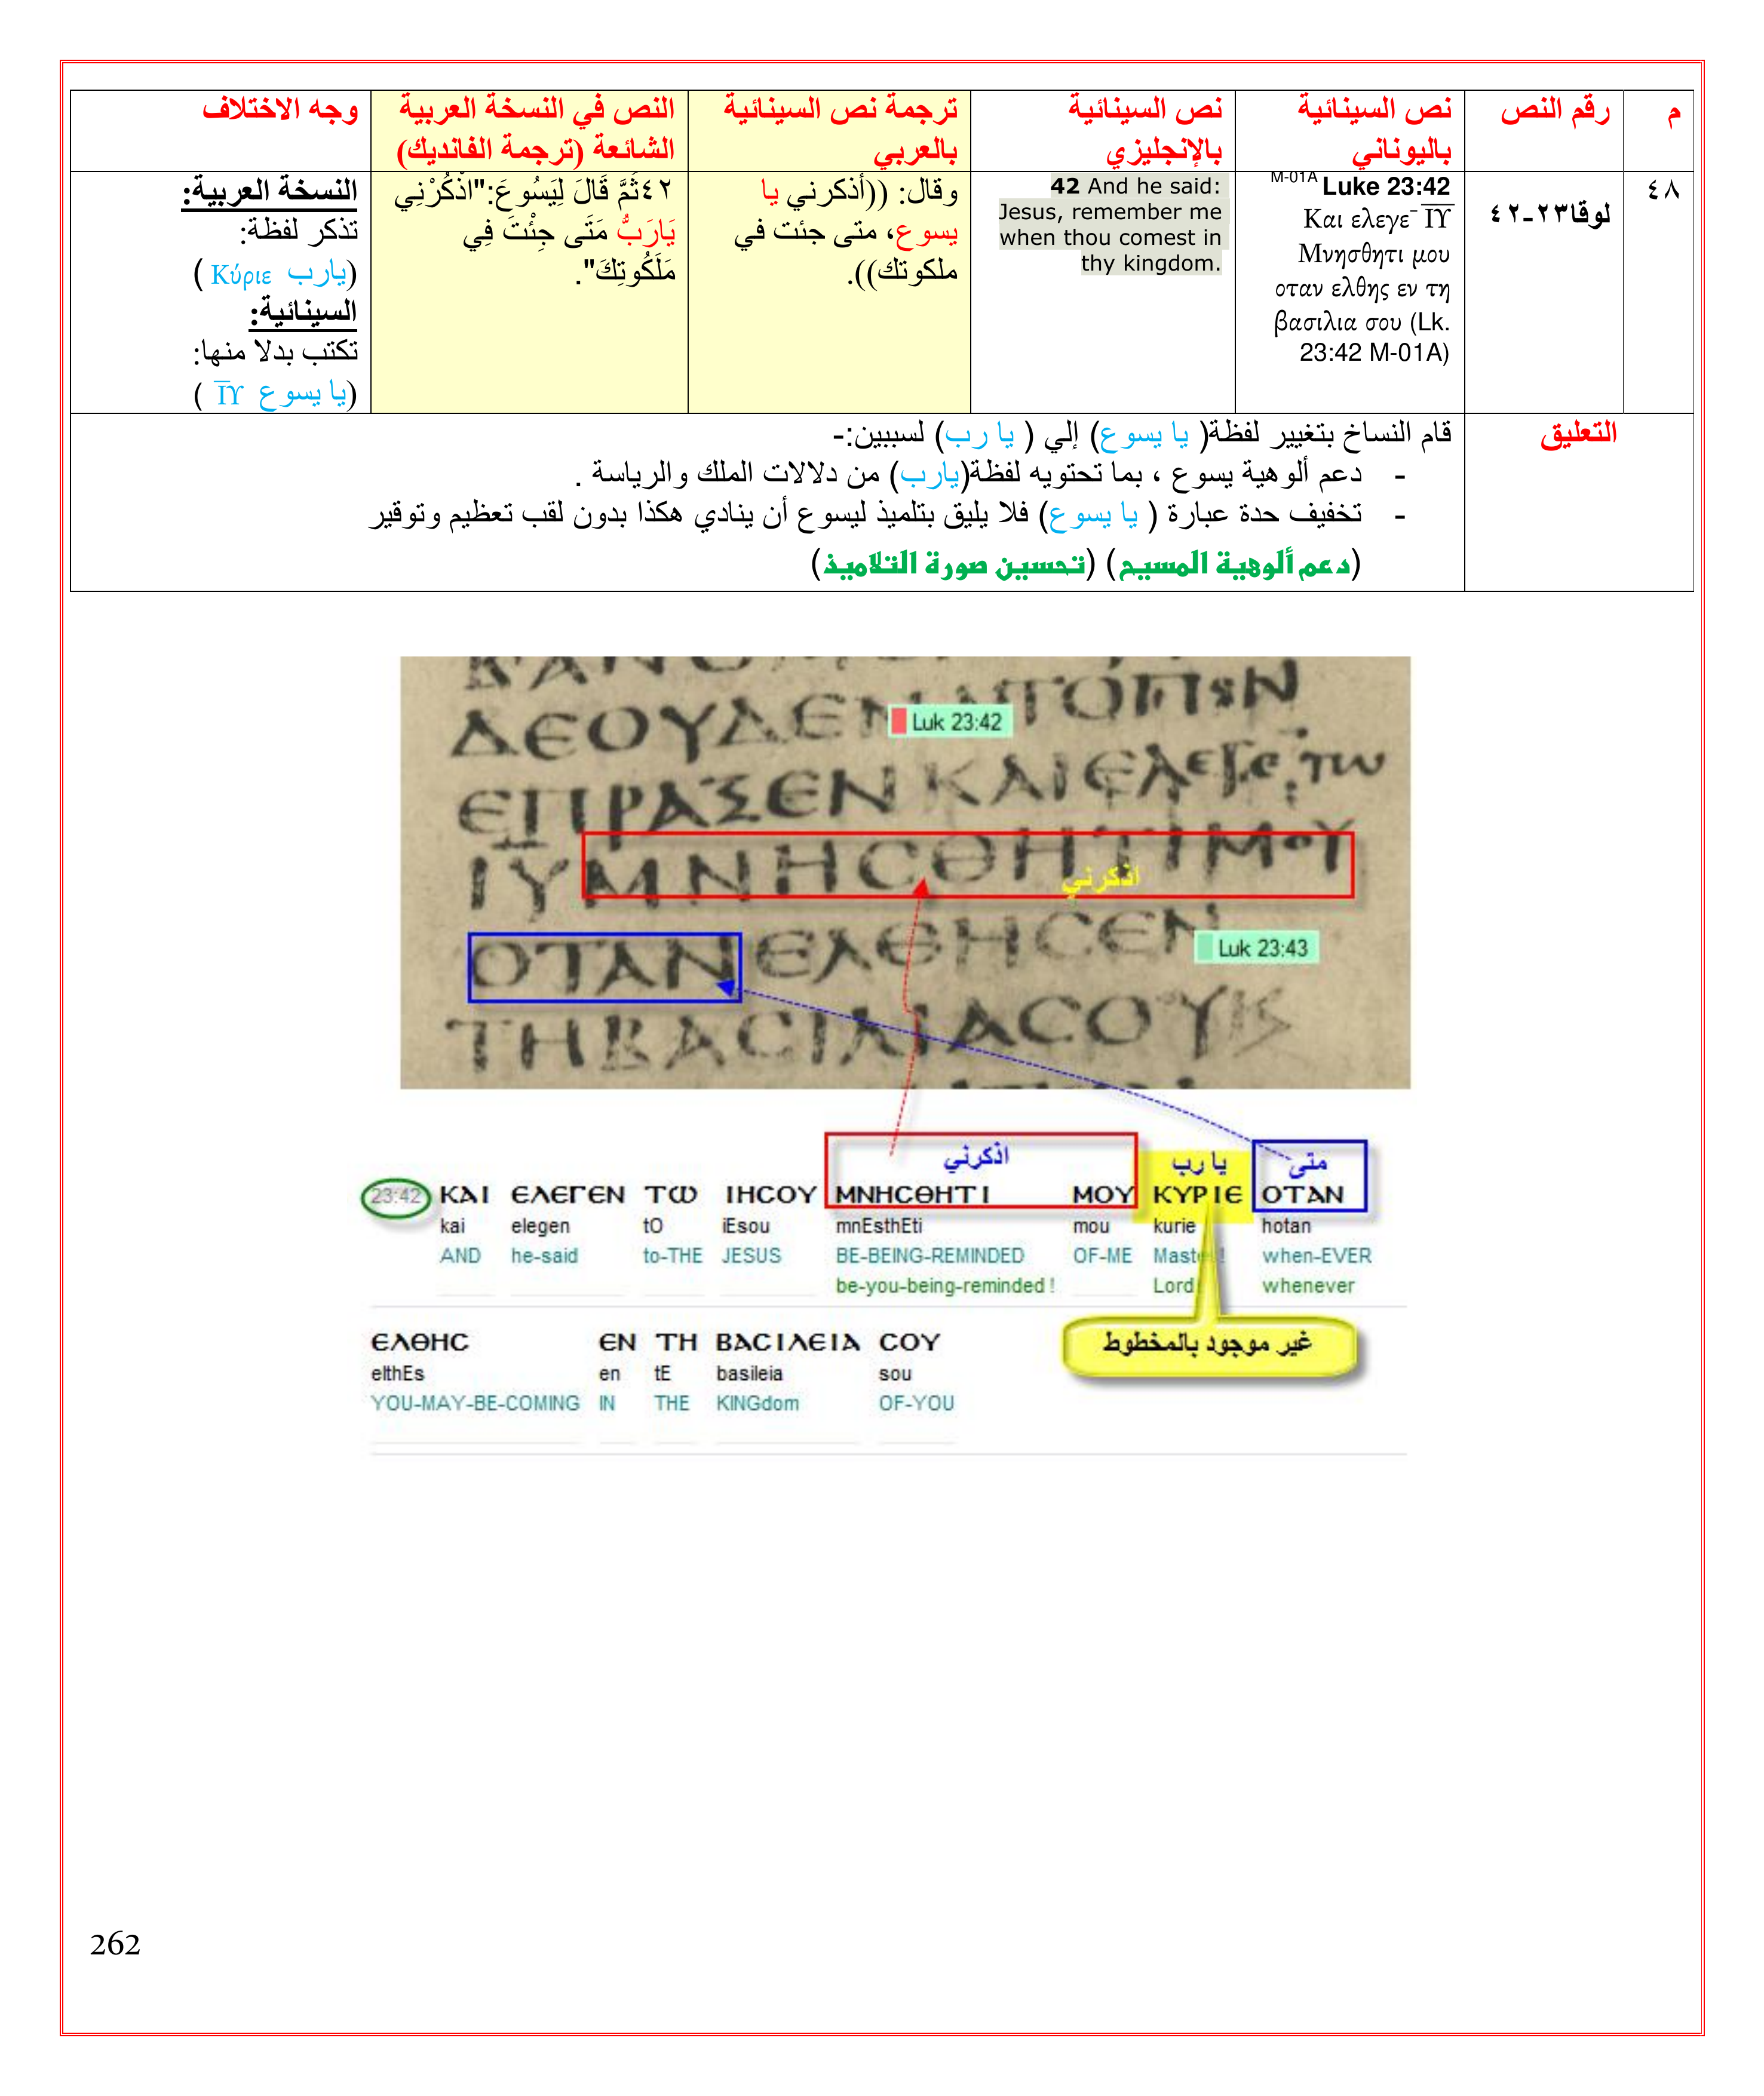 م
رقم النص
نص السينائية باليوناني
نص السينائية بالإنجليزي
ترجمة نص السينائية بالعربي
النص في النسخة العربية الشائعة (ترجمة الفانديك)
وجه الاختلاف
٤٨
لوقا٢٣-٤٢
M-01A Luke 23:42
Και ελεγε‾ ΙΥ
Μνησθητι μου
οταν ελθης εν τη
βασιλια σου (Lk.
23:42 M-01A)
42 And he said:
Jesus, remember me
when thou comest in
thy kingdom.
وقال: ((أذكرني يا
يسوع، متى جئت في
ملكوتك)).
٤٢ثُمَّ قَالَ لِيَسُوعَ:"اذْكُرْنِي
يَارَبُّ مَتَى جِئْتَ فِي
مَلَكُوتِكَ".
النسخة العربية:
تذكر لفظة:
(يارب Κύριε )
السينائية:
تكتب بدلا منها:
(يا يسوع ΙΥ )
التعليق
قام النساخ بتغيير لفظة( يا يسوع) إلي ( يا رب) لسببين:-
- دعم ألوهية يسوع ، بما تحتويه لفظة(يارب) من دلالات الملك والرياسة .
- تخفيف حدة عبارة ( يا يسوع) فلا يليق بتلميذ ليسوع أن ينادي هكذا بدون لقب تعظيم وتوقير
(دعم ألوهية المسيح) (تحسين صورة التلاميذ)
ΔΕΟΥΔΕΝΑΤΟΠΟΝ
Luk 23:42
ΕΠΡΑΞΕΝΚΑΙΕΛΕΓΕ τω
ΙΥΜΝΗCΘΗΤΙΜΟΥ
اذكرني
ΟΤΑΝΕΛΘΗCΕΝ
Luk 23:43
ΤΗΒΑCΙΛΙΑCΟΥΚ
اذكرني
يا رب
متى
23:42 ΚΑΙ ΕΛΕΓΕΝ ΤΩ ΙΗCΟΥ ΜΝΗCΘΗΤΙ ΜΟΥ ΚΥΡΙΕ ΟΤΑΝ
kai elegen tO iEsou mnEsthEti mou kurie hotan
AND he-said to-THE JESUS BE-BEING-REMINDED OF-ME Master! when-EVER
be-you-being-reminded ! Lord whenever
غير موجود بالمخطوط
ΕΛΘΗC ΕΝ ΤΗ ΒΑCΙΛΕΙΑ CΟΥ
elthEs en tE basileia sou
YOU-MAY-BE-COMING IN THE KINGdom OF-YOU
262